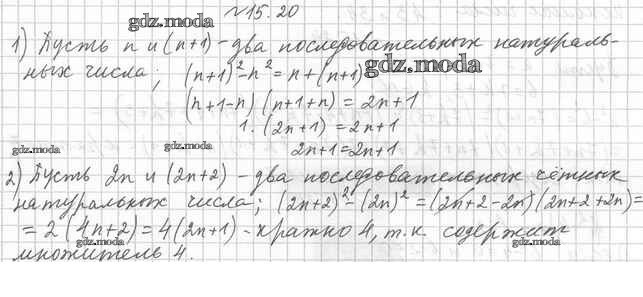 №15.20
gdz.moda
1) Пусть n и (n+1) - два последовательных натураль-
ных числа; (n+1)²-n² = n+(n+1)
gdz.moda
(n+1-n)(n+1+n) = 2n+1
1·(2n+1) = 2n+1
gdz.moda gdz.moda 2n+1=2n+1
2) Пусть 2n и (2n+2) - два последовательных чётных
натуральных числа; (2n+2)²-(2n)² = (2n+2-2n)(2n+2+2n)=
= 2(4n+2)=4(2n+1) - кратно 4, т.к. содержит
gdz.moda gdz.moda
множитель 4.